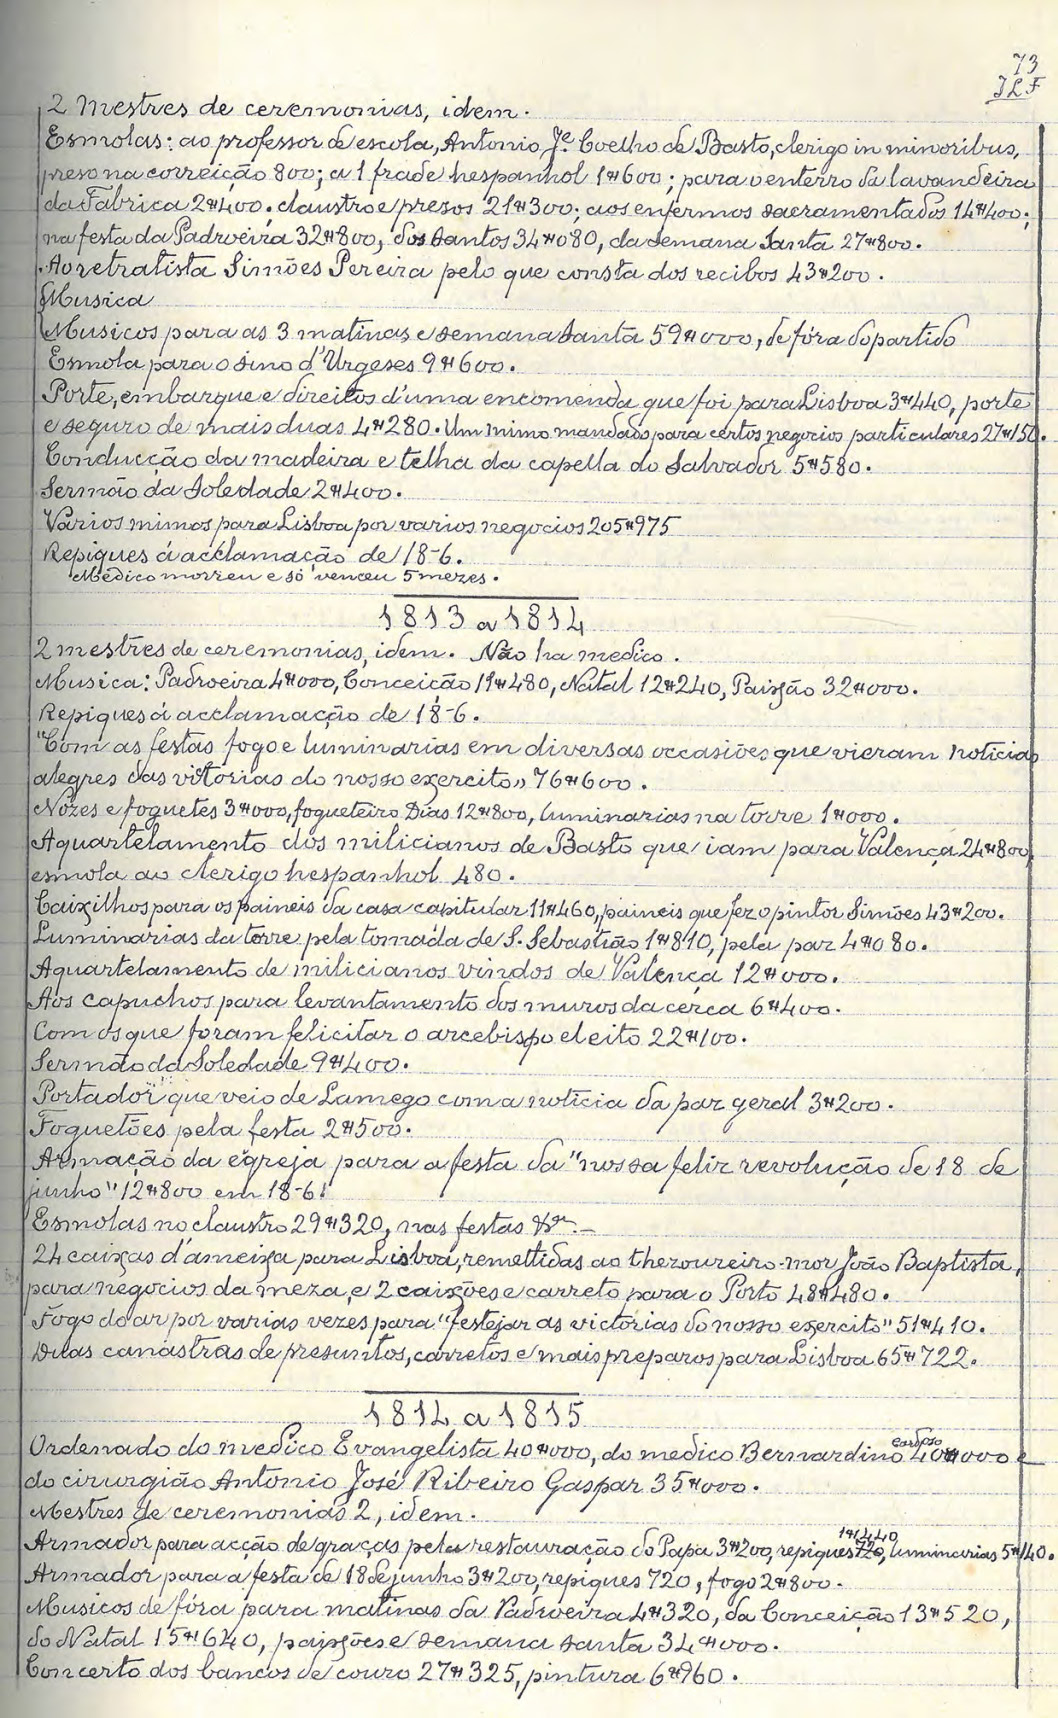 73
JLF
2 Mestres de ceremonias, idem.
Esmolas: ao professor de escola, Antonio Jé. Coelho de Basto, clerigo in minoribus,
preso na correição 800; a 1 frade hespanhol 1$600; para o enterro da lavandeira
da Fabrica 2$400; claustro e presos 21$300; aos enfermos sacramentados 14$400;
na festa da Padroeira 32$800, dos Santos 34$080, da semana Santa 27$800.
Ao retratista Simões Pereira pelo que consta dos recibos 43$200.
Musica
Musicos para as 3 matinas e semana santa 59$000, de fóra do partido
Esmola para o sino d'Urgeses 9$600.
Porte, embarque e direitos d'uma encomenda que foi para Lisboa 3$440, porte
e seguro de mais duas 4$280. Um mimo mandado para certos negocios particulares 27$150.
Conducção da madeira e telha da capella do Salvador 5$580.
Sermão da Soledade 2$400.
Varios mimos para Lisboa por varios negocios 205$975
Repiques á acclamação de 18-6.
Medico morreu e só venceu 5 mezes.
1813 a 1814
2 mestres de ceremonias, idem. Não ha medico.
Musica: Padroeira 4$000, Conceição 11$480, Natal 12$240, Paixão 32$000.
Repiques á acclamação de 18-6.
"Com as festas fogo e luminarias em diversas occasiões que vieram noticias
alegres das vitorias do nosso exercito" 76$600.
Nozes e foguetes 3$000, fogueteiro Dias 12$800, luminarias na torre 1$000.
Aquartelamento dos milicianos de Basto que iam para Valença 24$800,
esmola ao clerigo hespanhol 480.
Caixilhos para os paineis da casa capitular 11$460, paineis que fez o pintor Simões 43$200.
Luminarias da torre pela tomada de S. Sebastião 1$810, pela paz 4$080.
Aquartelamento de milicianos vindos de Valença 12$000.
Aos capuchos para levantamento dos muros da cerca 6$400.
Com os que foram felicitar o arcebispo eleito 22$100.
Sermão da Soledade 9$400.
Portador que veio de Lamego com a noticia da paz geral 3$200.
Foguetões pela festa 2$500.
Armação da egreja para a festa da "nossa feliz revolução de 18 de
junho" 12$800 em 18-6!
Esmolas no claustro 29$320, nas festas &ª. —
24 caixas d'ameixa para Lisboa, remettidas ao thezoureiro-mor João Baptista,
para negocios da meza, e 2 caixões e carreto para o Porto 48$480.
Fogo do ar por varias vezes para "festejar as victorias do nosso exercito" 51$410.
Duas canastras de presuntos, carretos e mais preparos para Lisboa 65$722.
1814 a 1815
Ordenado do medico Evangelista 40$000, do medico Bernardino Cardoso 40$000 e
do cirurgião Antonio José Ribeiro Gaspar 35$000.
Mestres de ceremonias 2, idem.
Armador para acção de graças pela restauração do Papa 3$200, repiques 720, 1$440, luminarias 5$140.
Armador para a festa de 18 de junho 3$200, repiques 720, fogo 2$800.
Musicos de fóra para matinas da Padroeira 4$320, da Conceição 13$520,
do Natal 15$640, paixões e semana santa 34$000.
Concerto dos bancos de couro 27$325, pintura 6$960.